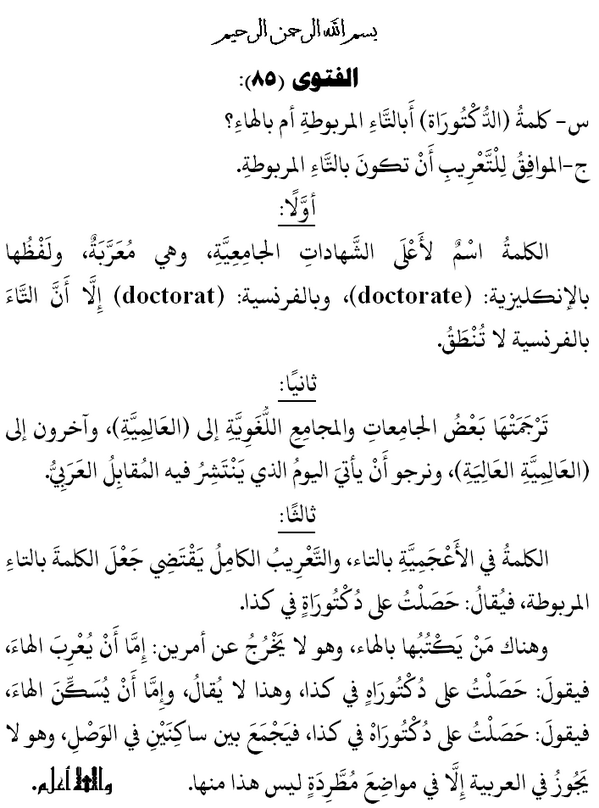 بسم الله الرحمن الرحيم
الفتوى (٨٥):
س- كلمةُ (الدُّكْتُورَاة) أَبالتَّاءِ المربوطةِ أم بالهاءِ؟
ج-الموافِقُ لِلْتَّعْرِيبِ أَنْ تكونَ بالتَّاءِ المربوطةِ.
أوَّلًا:
الكلمةُ اسْمٌ لأَعْلَى الشَّهاداتِ الجامِعِيَّةِ، وهي مُعَرَّبَةٌ، ولَفْظُها
بالإنكليزية: (doctorate)، وبالفرنسية: (doctorat) إِلَّا أَنَّ التَّاءَ
بالفرنسية لا تُنْطَقُ.
ثانيًا:
تَرْجَمَتْهَا بَعْضُ الجامعاتِ والمجامِعِ اللُّغَوِيَّةِ إلى (العَالِمِيَّةِ)، وآخرون إلى
(العَالِمِيَّةِ العَالِيَةِ)، ونرجو أَنْ يأتيَ اليومُ الذي يَنْتَشِرُ فيه المُقابِلُ العَرَبِيُّ.
ثالثًا:
الكلمةُ في الأَعْجَمِيَّةِ بالتاء، والتَّعْرِيبُ الكامِلُ يَقْتَضِي جَعْلَ الكلمةَ بالتاءِ
المربوطة، فيُقالُ: حَصَلْتُ على دُكْتُورَاةٍ في كذا.
وهناك مَنْ يَكْتُبُها بالهاء، وهو لا يَخْرُجُ عن أمرين: إِمَّا أَنْ يُعْرِبَ الهاءَ،
فيقولَ: حَصَلْتُ على دُكْتُورَاهٍ في كذا، وهذا لا يُقالُ، وإِمَّا أَنْ يُسَكِّنَ الهاءَ،
فيقولَ: حَصَلْتُ على دُكْتُورَاهْ في كذا، فيَجْمَعَ بين ساكِنَيْنِ في الوَصْلِ، وهو لا
يَجُوزُ في العربية إِلَّا في مواضِعَ مُطَّرِدَةٍ ليس هذا منها. والله أعلم.